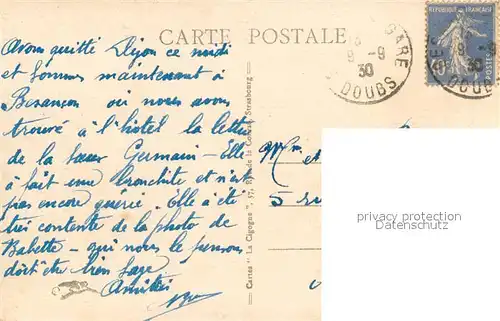 CARTE POSTALE
Avons quitté Dijon ce midi
et sommes maintenant à
Besançon où nous avons
trouvé à l'hôtel la lettre
de la sœur Germain - Elle
a fait une bronchite et n'est
pas encore guérie. Elle a été
très contente de la photo de
Babette - qui nous le pensons
doit être bien sage
Amitiés
GARE
9 -9
30
DOUBS
REPUBLIQUE FRANÇAISE
POSTES
9
30
DOUBS
Cartes "La Cigogne", 57, R. du Strasbourg
privacy protection
Datenschutz